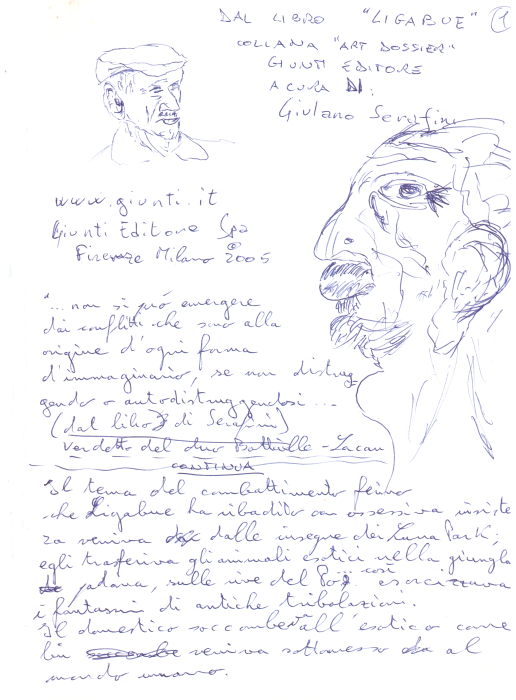 DAL LIBRO "LIGABUE" 1
COLLANA "ART DOSSIER"
GIUNTI EDITORE
A CURA DI:
Giuliano Serafini
www.giunti.it
Giunti Editore Spa
Firenze Milano © 2005
"... non si può emergere
dai conflitti che sono alla
origine d'ogni forma
d'immaginario, se non distrug
gendo o autodistruggendosi ...
(dal libro di Serafini)
verdetto del duo Battaille - Lacan
CONTINUA
Il tema del combattimento ferino
che Ligabue ha ribadito con ossessiva insisten
za veniva dalle insegne dei Luna Park;
egli trasferiva gli animali esotici nella giungla
padana, sulle rive del Po... così esorcizzava
i fantasmi di antiche tribolazioni.
Il domestico soccombe all'esotico come
lui veniva sottomesso da al
mondo umano.